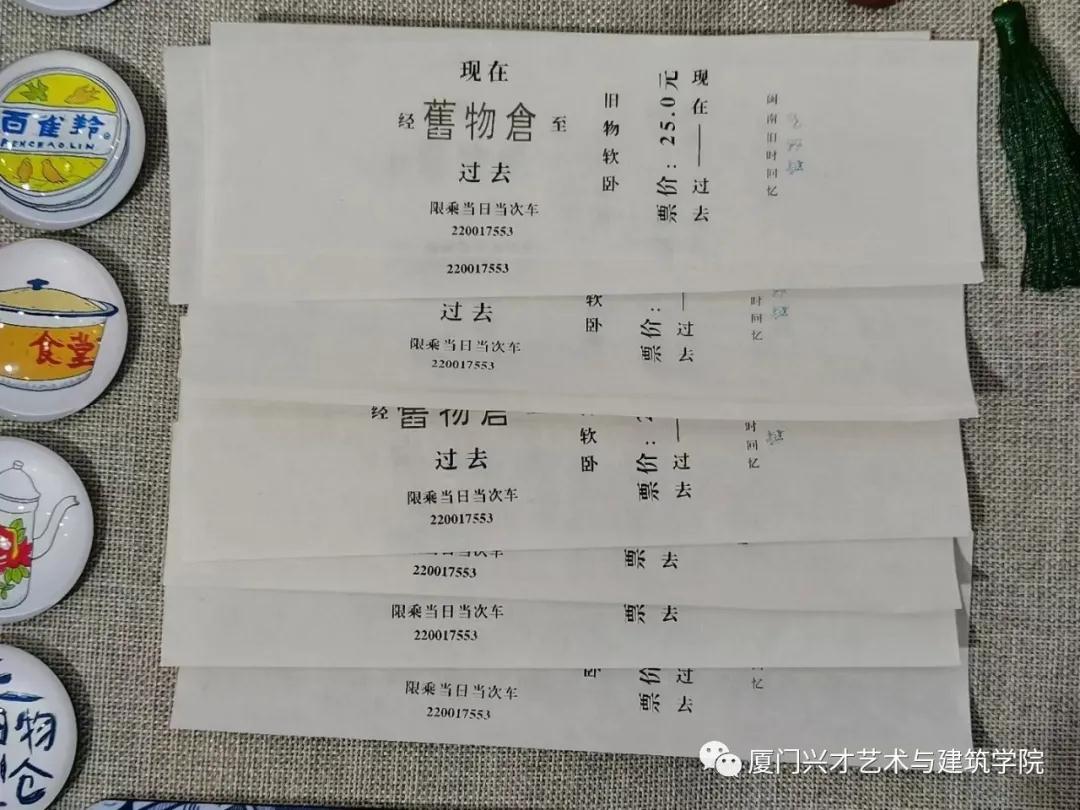 现在
经 舊物倉 至
过去
限乘当日当次车
220017553
220017553
旧物软卧
票价：25.0元
现在——过去
闽南旧时回忆
过去
限乘当日当次车
220017553
软卧
票价：
过去
时回忆
经 舊物倉
过去
限乘当日当次车
220017553
软卧
票价：
过去
时回忆
220017553
票
去
限乘当日当次车
220017553
票
去
限乘当日当次车
220017553
卧
票价
过去
忆
百雀羚
食堂
物
仓
厦门兴才艺术与建筑学院